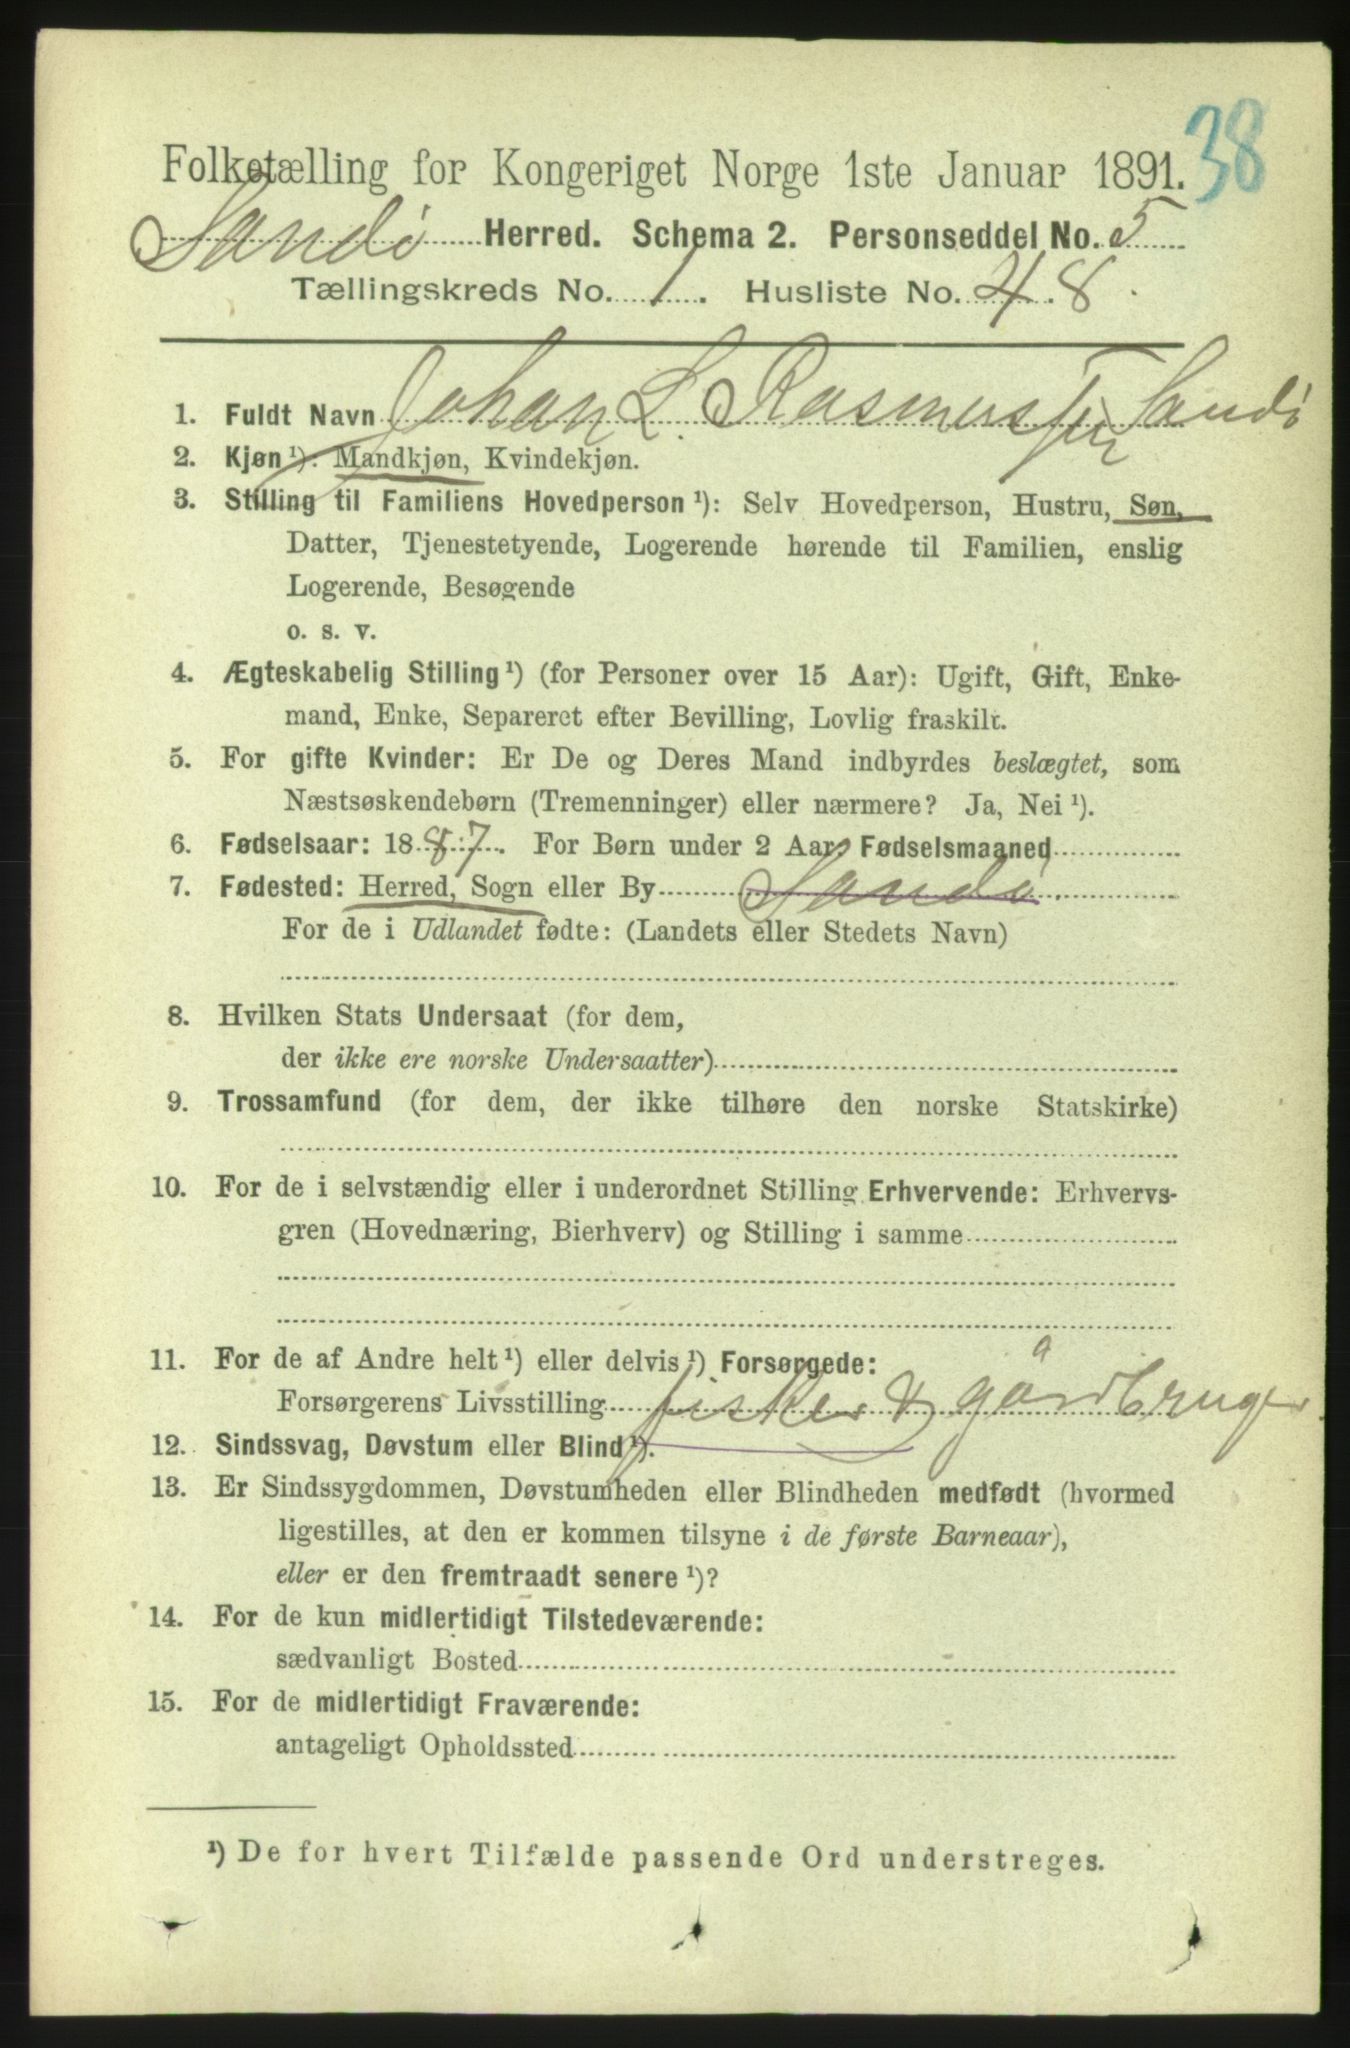 38
Folketælling for Kongeriget Norge 1ste Januar 1891.
Sandö Herred. Schema 2. Personseddel No. 5
Tællingskreds No. 1. Husliste No. 48.
1. Fuldt Navn Johan L. Rasmussen Sandö
2. Kjøn ¹): Mandkjøn, Kvindekjøn.
3. Stilling til Familiens Hovedperson ¹): Selv Hovedperson, Hustru, Søn,
Datter, Tjenestetyende, Logerende hørende til Familien, enslig
Logerende, Besøgende
o. s. v.
4. Ægteskabelig Stilling ¹) (for Personer over 15 Aar): Ugift, Gift, Enke-
mand, Enke, Separeret efter Bevilling, Lovlig fraskilt.
5. For gifte Kvinder: Er De og Deres Mand indbyrdes beslægtet, som
Næstsøskendebørn (Tremenninger) eller nærmere? Ja, Nei ¹).
6. Fødselsaar: 1887. For Børn under 2 Aar, Fødselsmaaned
7. Fødested: Herred, Sogn eller By Sandö.
For de i Udlandet fødte: (Landets eller Stedets Navn)
8. Hvilken Stats Undersaat (for dem,
der ikke ere norske Undersaatter)
9. Trossamfund (for dem, der ikke tilhøre den norske Statskirke)
10. For de i selvstændig eller i underordnet Stilling Erhvervende: Erhvervs-
gren (Hovednæring, Bierhverv) og Stilling i samme
11. For de af Andre helt ¹) eller delvis ¹) Forsørgede:
Forsørgerens Livsstilling fisker & gårdbruger
12. Sindssvag, Døvstum eller Blind ¹).
13. Er Sindssygdommen, Døvstumheden eller Blindheden medfødt (hvormed
ligestilles, at den er kommen tilsyne i de første Barneaar),
eller er den fremtraadt senere ¹)?
14. For de kun midlertidigt Tilstedeværende:
sædvanligt Bosted
15. For de midlertidigt Fraværende:
antageligt Opholdssted
¹) De for hvert Tilfælde passende Ord understreges.